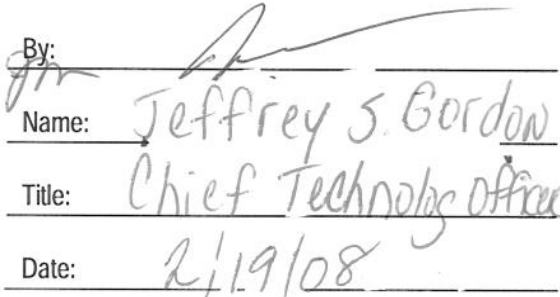 By:
Name: Jeffrey S. Gordon
Title: Chief Technolog Officer
Date: 2/19/08